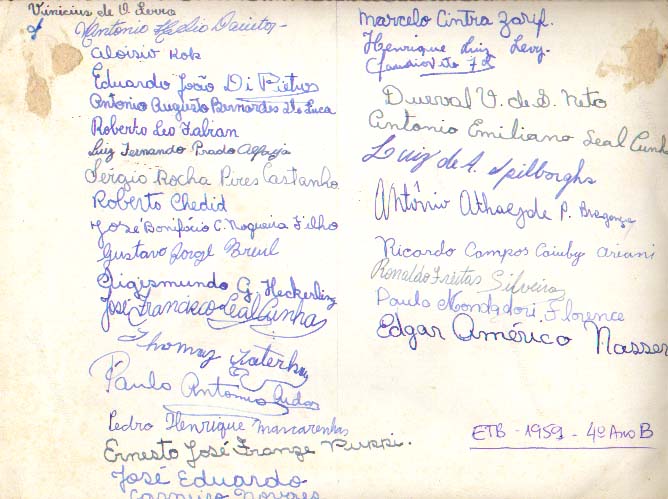 Vinicius de O. Serra
Antonio Helio
Aloisio Kok
Eduardo João Di Pietro
Antonio Augusto Bernardes De Luca
Roberto Leo Fabian
Luiz Fernando Prado
Sergio Rocha Pires Castanho
Roberto Chedid
José Bonifácio C. Nogueira Filho
Gustavo Jorge Breul
Sigismundo G. Heckerling
José Francisco Leal Cunha
Thomaz
Paulo Antonio
Pedro Henrique Mascarenhas
Ernesto José Puppi.
José Eduardo
Carneiro Novaes
Marcelo Cintra Zarif.
Henrique Luiz Levy.
Durval V. de S. Neto
Antonio Emiliano Leal Cunha
Luiz de A. Spilborghs
Antônio Athayde P. Bragança
Ricardo Campos Caiuby Ariani
Ronaldo Freitas Silveira
Paulo Mondadori Florence
Edgar Américo Nasser
ETB - 1959 - 4º Ano B